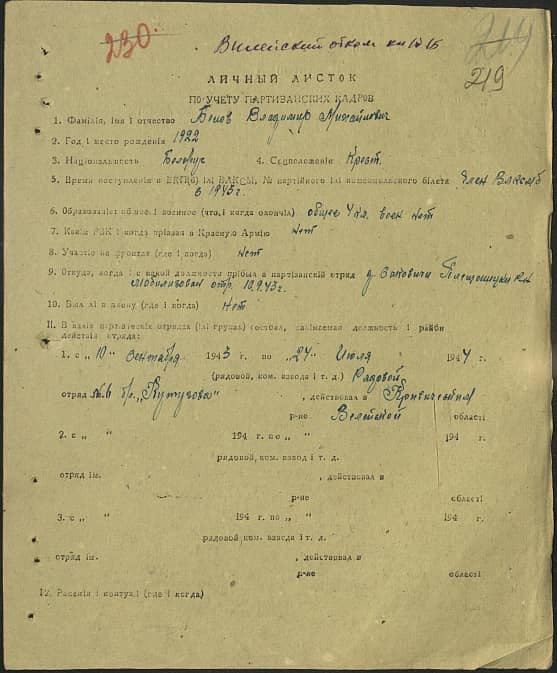 230
Вилейский
219
ЛИЧНЫЙ ЛИСТОК
ПО УЧЕТУ ПАРТИЗАНСКИХ КАДРОВ
1. Фамілія, імя і отчество Белов Владимир Михайлович
2. Год і место рождения 1922
3. Національность Белорус 4. Соцположеніе Крест.
5. Время вступленія в ВКП(б) ілі ВЛКСМ, № партійного ілі комсомольского білета Член ВЛКСМ
в 1943 г.
6. Образованіе: общее і военное (что, і когда окончіл) общее 4 кл. воен нет
7. Какім РВК і когда прізван в Красную Армію Нет
8. Участіе на фронтах (где і когда) Нет
9. Откуда, когда і с какой должності прібыл в партізанскій отряд д. Плещеницки р-н
Мобилизован отр. 10.9.43 г.
10. Был лі в плену (где і когда) Нет
11. В какіх партізанскіх отрядах (ілі групах) состоял, занімаемая должность і район
действія отряда:
1. с „10" Сентября 1943 г. по „24" Июля 1944 г.
(рядовой, ком. взвода і т. д.) Рядовой
отряд №6 бр. „Кутузова" , действовал в
р-не Вилейской області
2. с „ " 194 г. по „ " 194 г.
рядовой, ком. взвод і т. д.
отряд ім. , действовал в
р-не області
3. с „ " 194 г. по „ " 194 г.
рядовой ком. взвода і т. д.
отряд ім. , действовал в
р-не області
IV. Раненія і контузіі (где і когда)